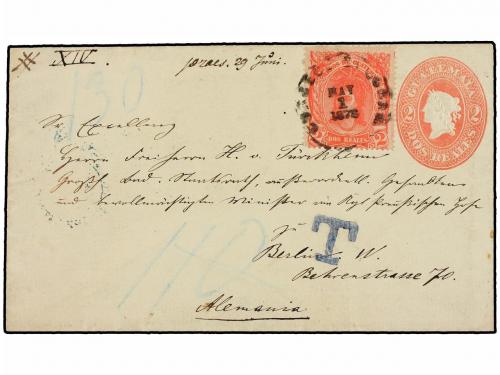 XIV.
praes. 29 Juni.
130
GUATEMALA
2 2
DOS REALES
DOS REALES
2
MAY
1
1878
Sr. Excellenz
Herrn Freiherrn H. v. Türckheim
Großh. bad. Staatsrath, außerordentl. Gesandten
und bevollmächtigten Minister am Kgl. Preußischen Hofe
zu
T
Berlin W.
Behrenstrasse 70.
Alemania